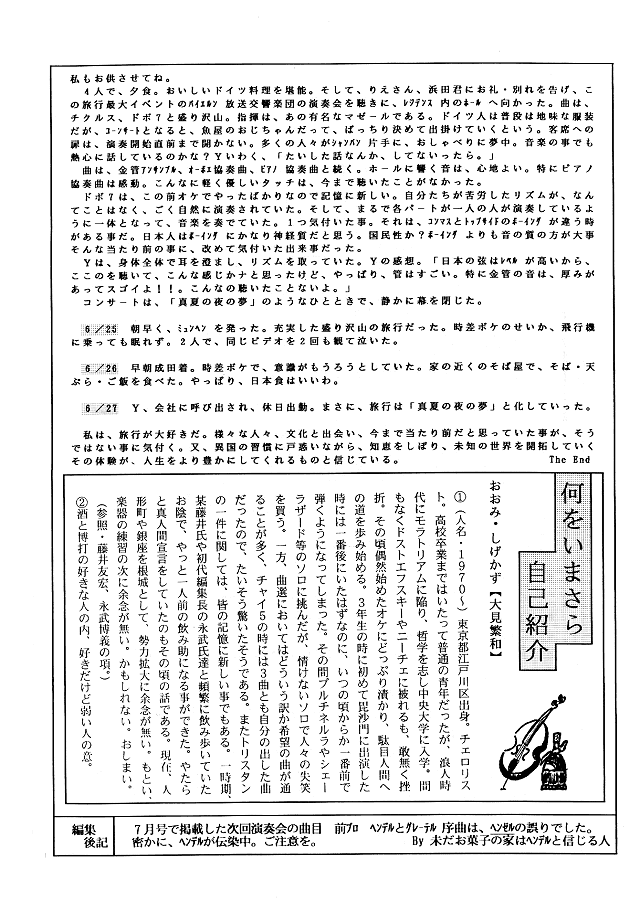 私もお供させてね。
　4人で、夕食。おいしいドイツ料理を堪能。そして、りえさん、浜田君にお礼・別れを告げ、こ
の旅行最大イベントのﾊﾞｲｴﾙﾝ 放送交響楽団の演奏会を聴きに、ﾚｼﾞﾃﾞﾝｽ 内のﾎｰﾙ へ向かった。曲は、
チクルス、ドボ7と盛り沢山。指揮は、あの有名なマゼールである。ドイツ人は普段は地味な服装
だが、ｺｰﾝｻｰﾄとなると、魚屋のおじちゃんだって、ばっちり決めて出掛けていくという。客席への
扉は、演奏開始直前まで開かない。多くの人々がｼｬﾝﾊﾟﾝ 片手に、おしゃべりに夢中。音楽の事でも
熱心に話しているのかな？Yいわく、「たいした話なんか、してないったら。」
　曲は、金管ｱﾝｻﾝﾌﾞﾙ、ｵｰﾎﾞｴ協奏曲、ﾋﾟｱﾉ 協奏曲と続く。ホールに響く音は、心地よい。特にピアノ
協奏曲は感動。こんなに軽く優しいタッチは、今まで聴いたことがなかった。
　ドボ7は、この前オケでやったばかりなので記憶に新しい。自分たちが苦労したリズムが、なん
てことはなく、ごく自然に演奏されていた。そして、まるで各パートが一人の人が演奏しているよ
うに一体となって、音楽を奏でていた。1つ気付いた事。それは、ｺﾝﾏｽとﾄｯﾌﾟｻｲﾄﾞのﾎﾞｰｲﾝｸﾞ が違う時
がある事だ。日本人はﾎﾞｰｲﾝｸﾞ にかなり神経質だと思う。国民性か？ﾎﾞｰｲﾝｸﾞ よりも音の質の方が大事
そんな当たり前の事に、改めて気付いた出来事だった。
　Yは、身体全体で耳を澄まし、リズムを取っていた。Yの感想。「日本の弦はﾚﾍﾞﾙ が高いから、
ここのを聴いて、こんな感じかナと思ったけど、やっぱり、管はすごい。特に金管の音は、厚みが
あってスゴイよ！！。こんなの聴いたことないよ。」
　コンサートは、「真夏の夜の夢」のようなひとときで、静かに幕を閉じた。
6／25　朝早く、ﾐｭﾝﾍﾝ を発った。充実した盛り沢山の旅行だった。時差ボケのせいか、飛行機
に乗っても眠れず。2人で、同じビデオを2回も観て泣いた。
6／26　早朝成田着。時差ボケで、意識がもうろうとしていた。家の近くのそば屋で、そば・天
ぷら・ご飯を食べた。やっぱり、日本食はいいわ。
6／27　Y、会社に呼び出され、休日出勤。まさに、旅行は「真夏の夜の夢」と化していった。
　私は、旅行が大好きだ。様々な人々、文化と出会い、今まで当たり前だと思っていた事が、そう
ではない事に気付く。又、異国の習慣に戸惑いながら、知恵をしぼり、未知の世界を開拓していく
その体験が、人生をより豊かにしてくれるものと信じている。　　　The End
何をいまさら
自己紹介
おおみ・しげかず【大見繁和】
①（人名・1970～）東京都江戸川区出身。チェロリス
ト。高校卒業まではいたって普通の青年だったが、浪人時
代にモラトリアムに陥り、哲学を志し中央大学に入学。間
もなくドストエフスキーやニーチェに被れるも、敢無く挫
折。その頃偶然始めたオケにどっぷり漬かり、駄目人間へ
の道を歩み始める。3年生の時に初めて毘沙門に出演した
時には一番後にいたはずなのに、いつの頃からか一番前で
弾くようになってしまった。その間プルチネルラやシェー
ラザード等のソロに挑んだが、情けないソロで人々の失笑
を買う。一方、曲選においてはどういう訳か希望の曲が通
ることが多く、チャイ5の時には3曲とも自分の出した曲
だったので、たいそう驚いたそうである。またトリスタン
の一件に関しては、皆の記憶に新しい事でもある。一時期、
某藤井氏や初代編集長の永武氏達と頻繁に飲み歩いていた
お陰で、やっと一人前の飲み助になる事ができた。やたら
と真人間宣言をしていたのもその頃の話である。現在、人
形町や銀座を根城として、勢力拡大に余念が無い。もとい、
楽器の練習の次に余念が無い。かもしれない。おしまい。
（参照・藤井友宏、永武博義の項。）
②酒と博打の好きな人の内、好きだけど弱い人の意。
編集
後記
7月号で掲載した次回演奏会の曲目　前ﾌﾟﾛ　ﾍﾝﾃﾞﾙとｸﾞﾚｰﾃﾙ 序曲は、ﾍﾝｾﾞﾙの誤りでした。
密かに、ﾍﾝﾃﾞﾙが伝染中。ご注意を。　　By 未だお菓子の家はﾍﾝﾃﾞﾙと信じる人